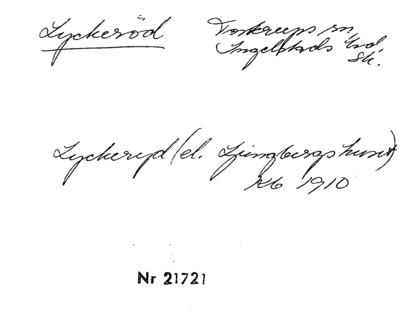 Lyckeröd Tosterups sn,
Ingelstads hd,
Sk.
Lyckeryd (el. Ljungbergshuset)
Kb 1910
Nr 21721